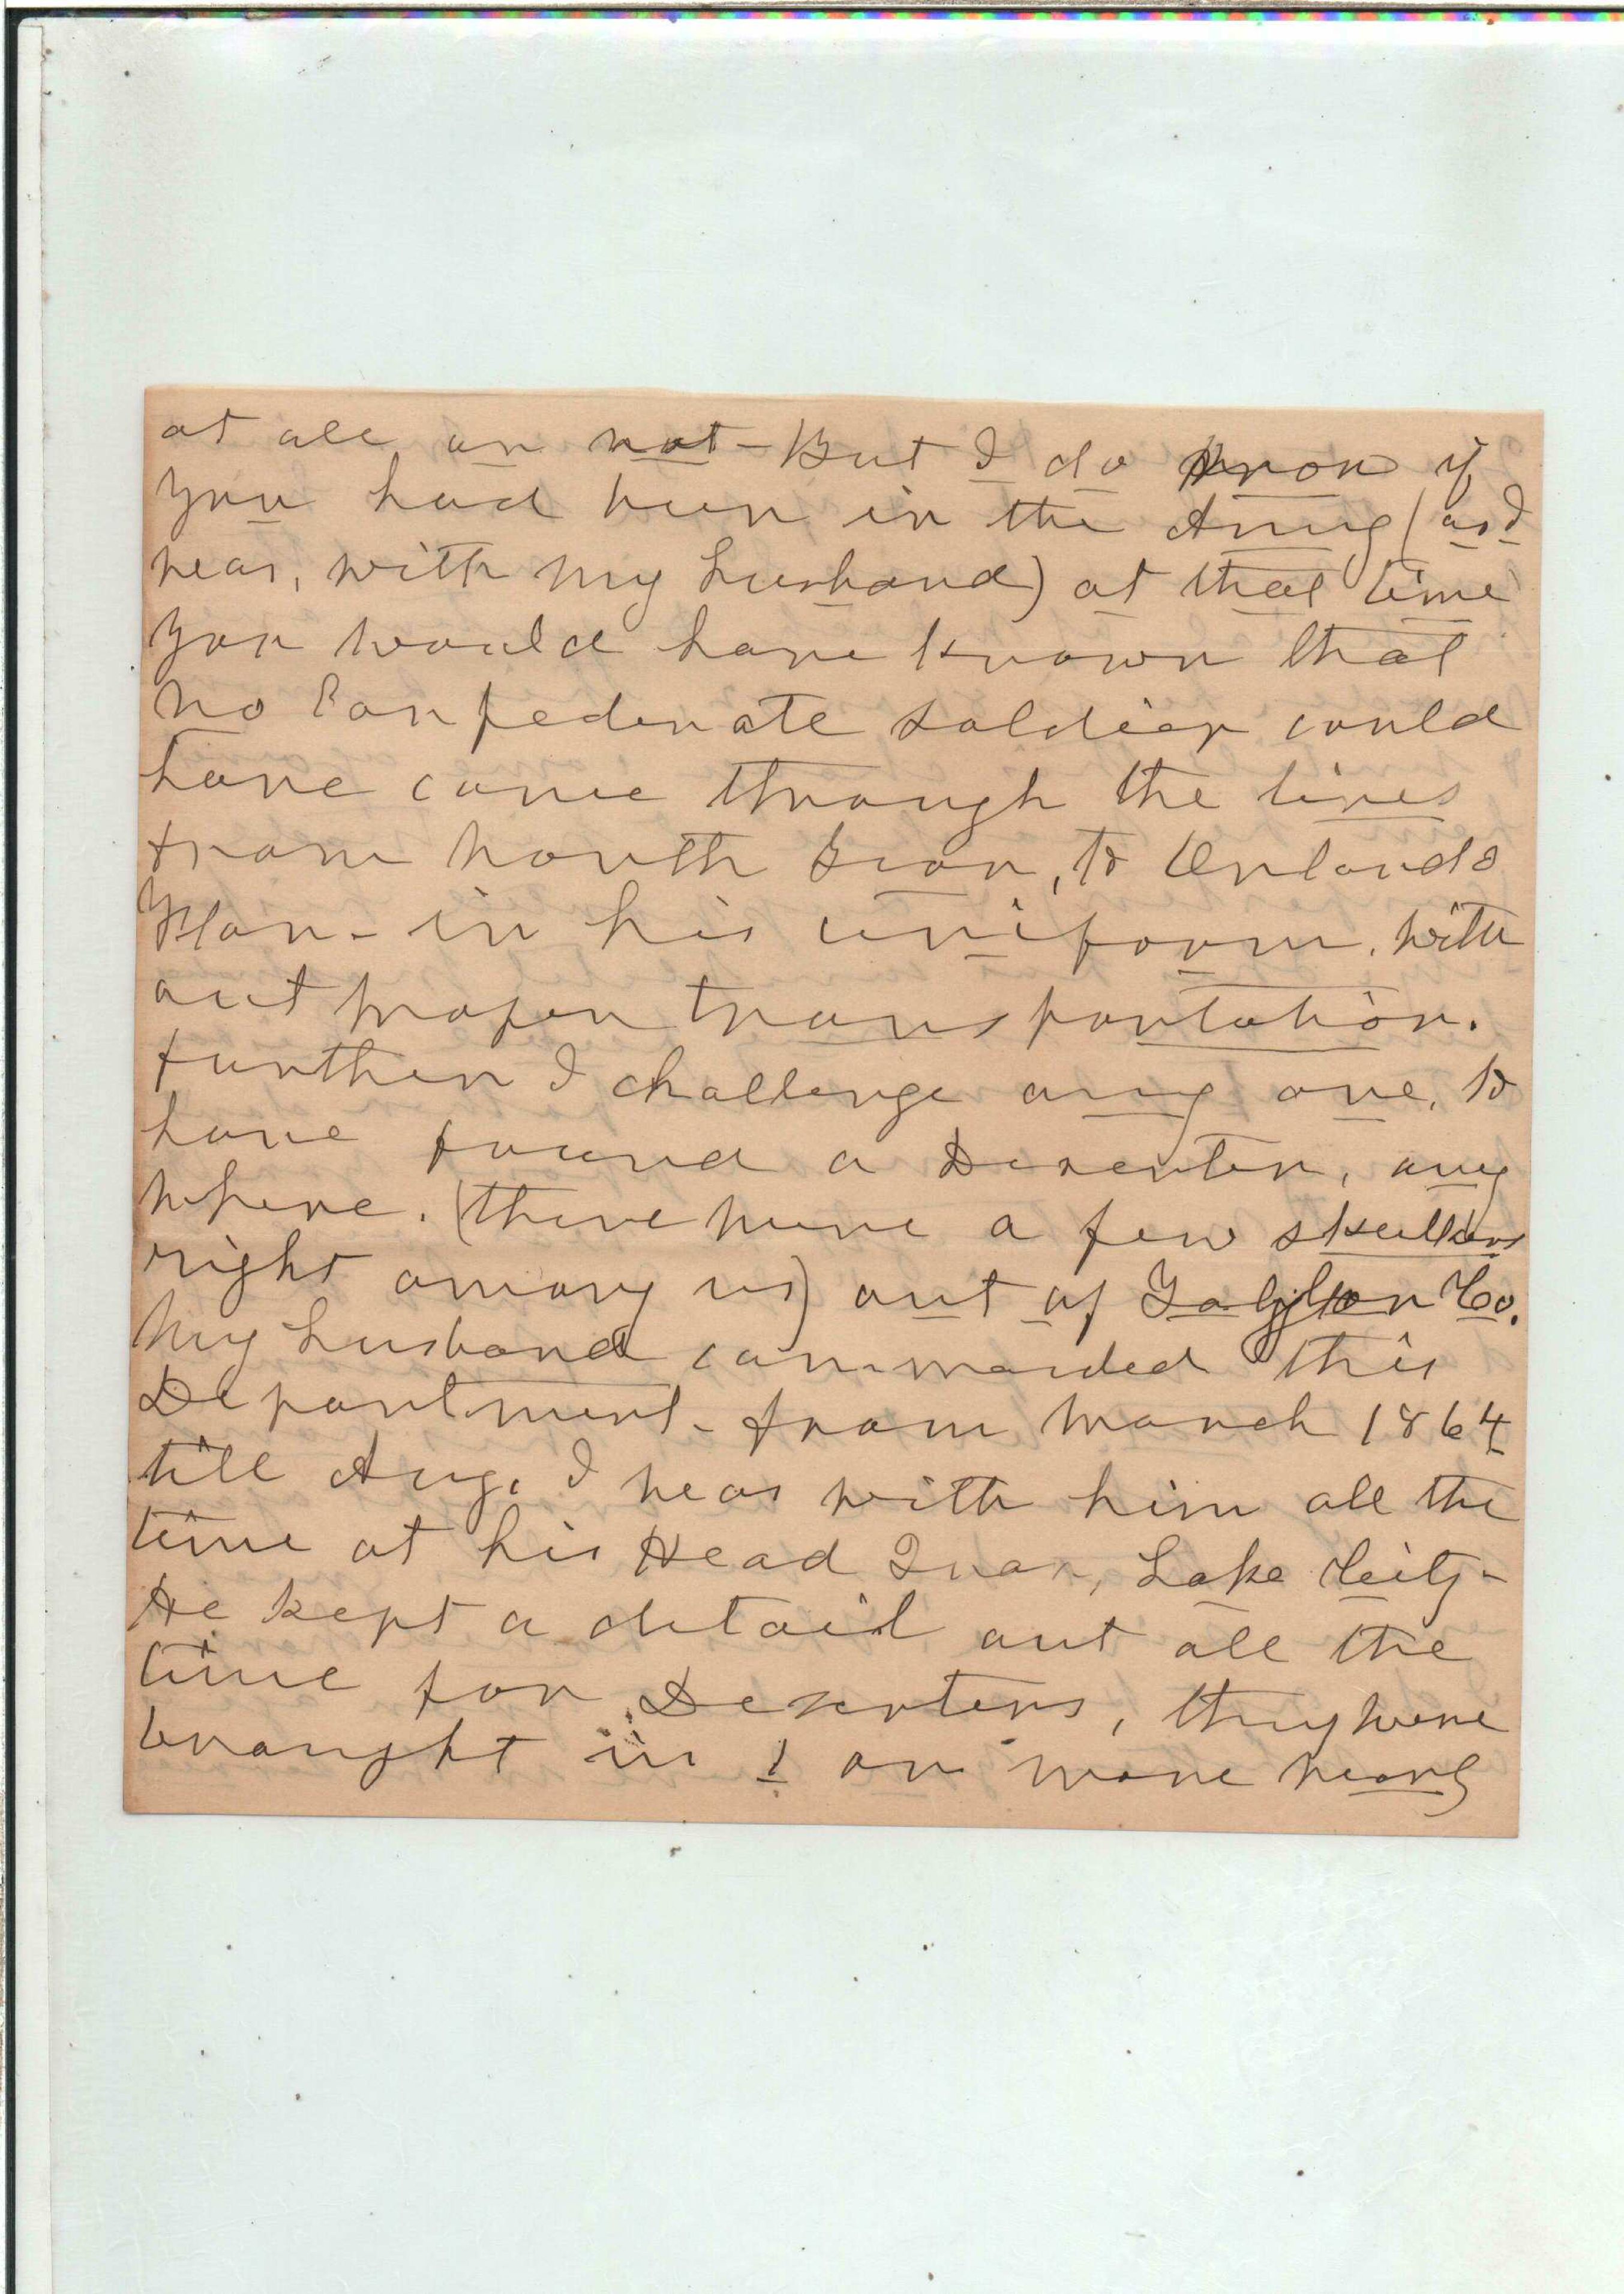 at all or not - But I do know if
you had been in the Army (as I
was, with my husband) at that time
you would have known that
no Confederate soldier could
have come through the lines
from north Geor, to Orlando
Flor - in his uniform, with
out proper transportation.
further I challenge any one, to
have found a Deserter, any
where. (there were a few skulkers
right among us) out of Taylor Co.
My husband commanded this
Department - from March 1864
till Aug. I was with him all the
time at his Head Quar, Lake City -
He kept a detail out all the
time for Deserters, they were
brought in 1 or more nearly